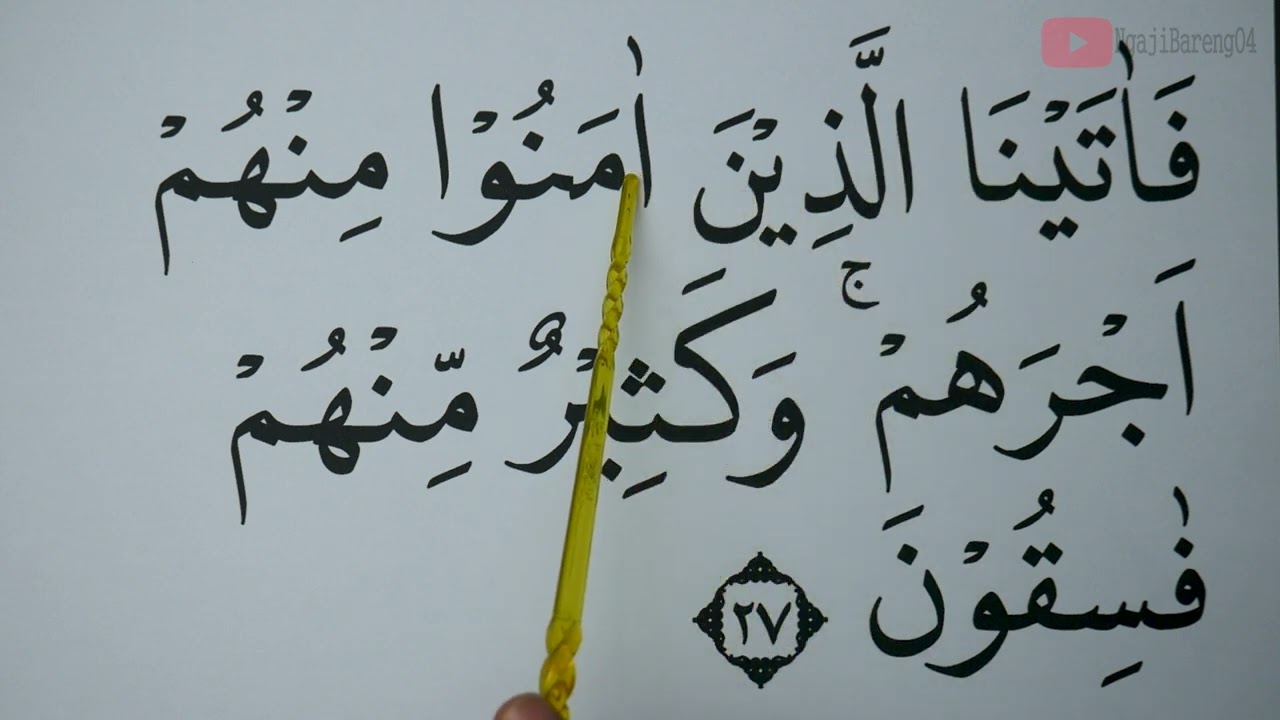 NgajiBareng04
فَاٰتَيْنَا الَّذِيْنَ اٰمَنُوْا مِنْهُمْ
اَجْرَهُمْ ۚ وَكَثِيْرٌ مِّنْهُمْ
فٰسِقُوْنَ ٢٧